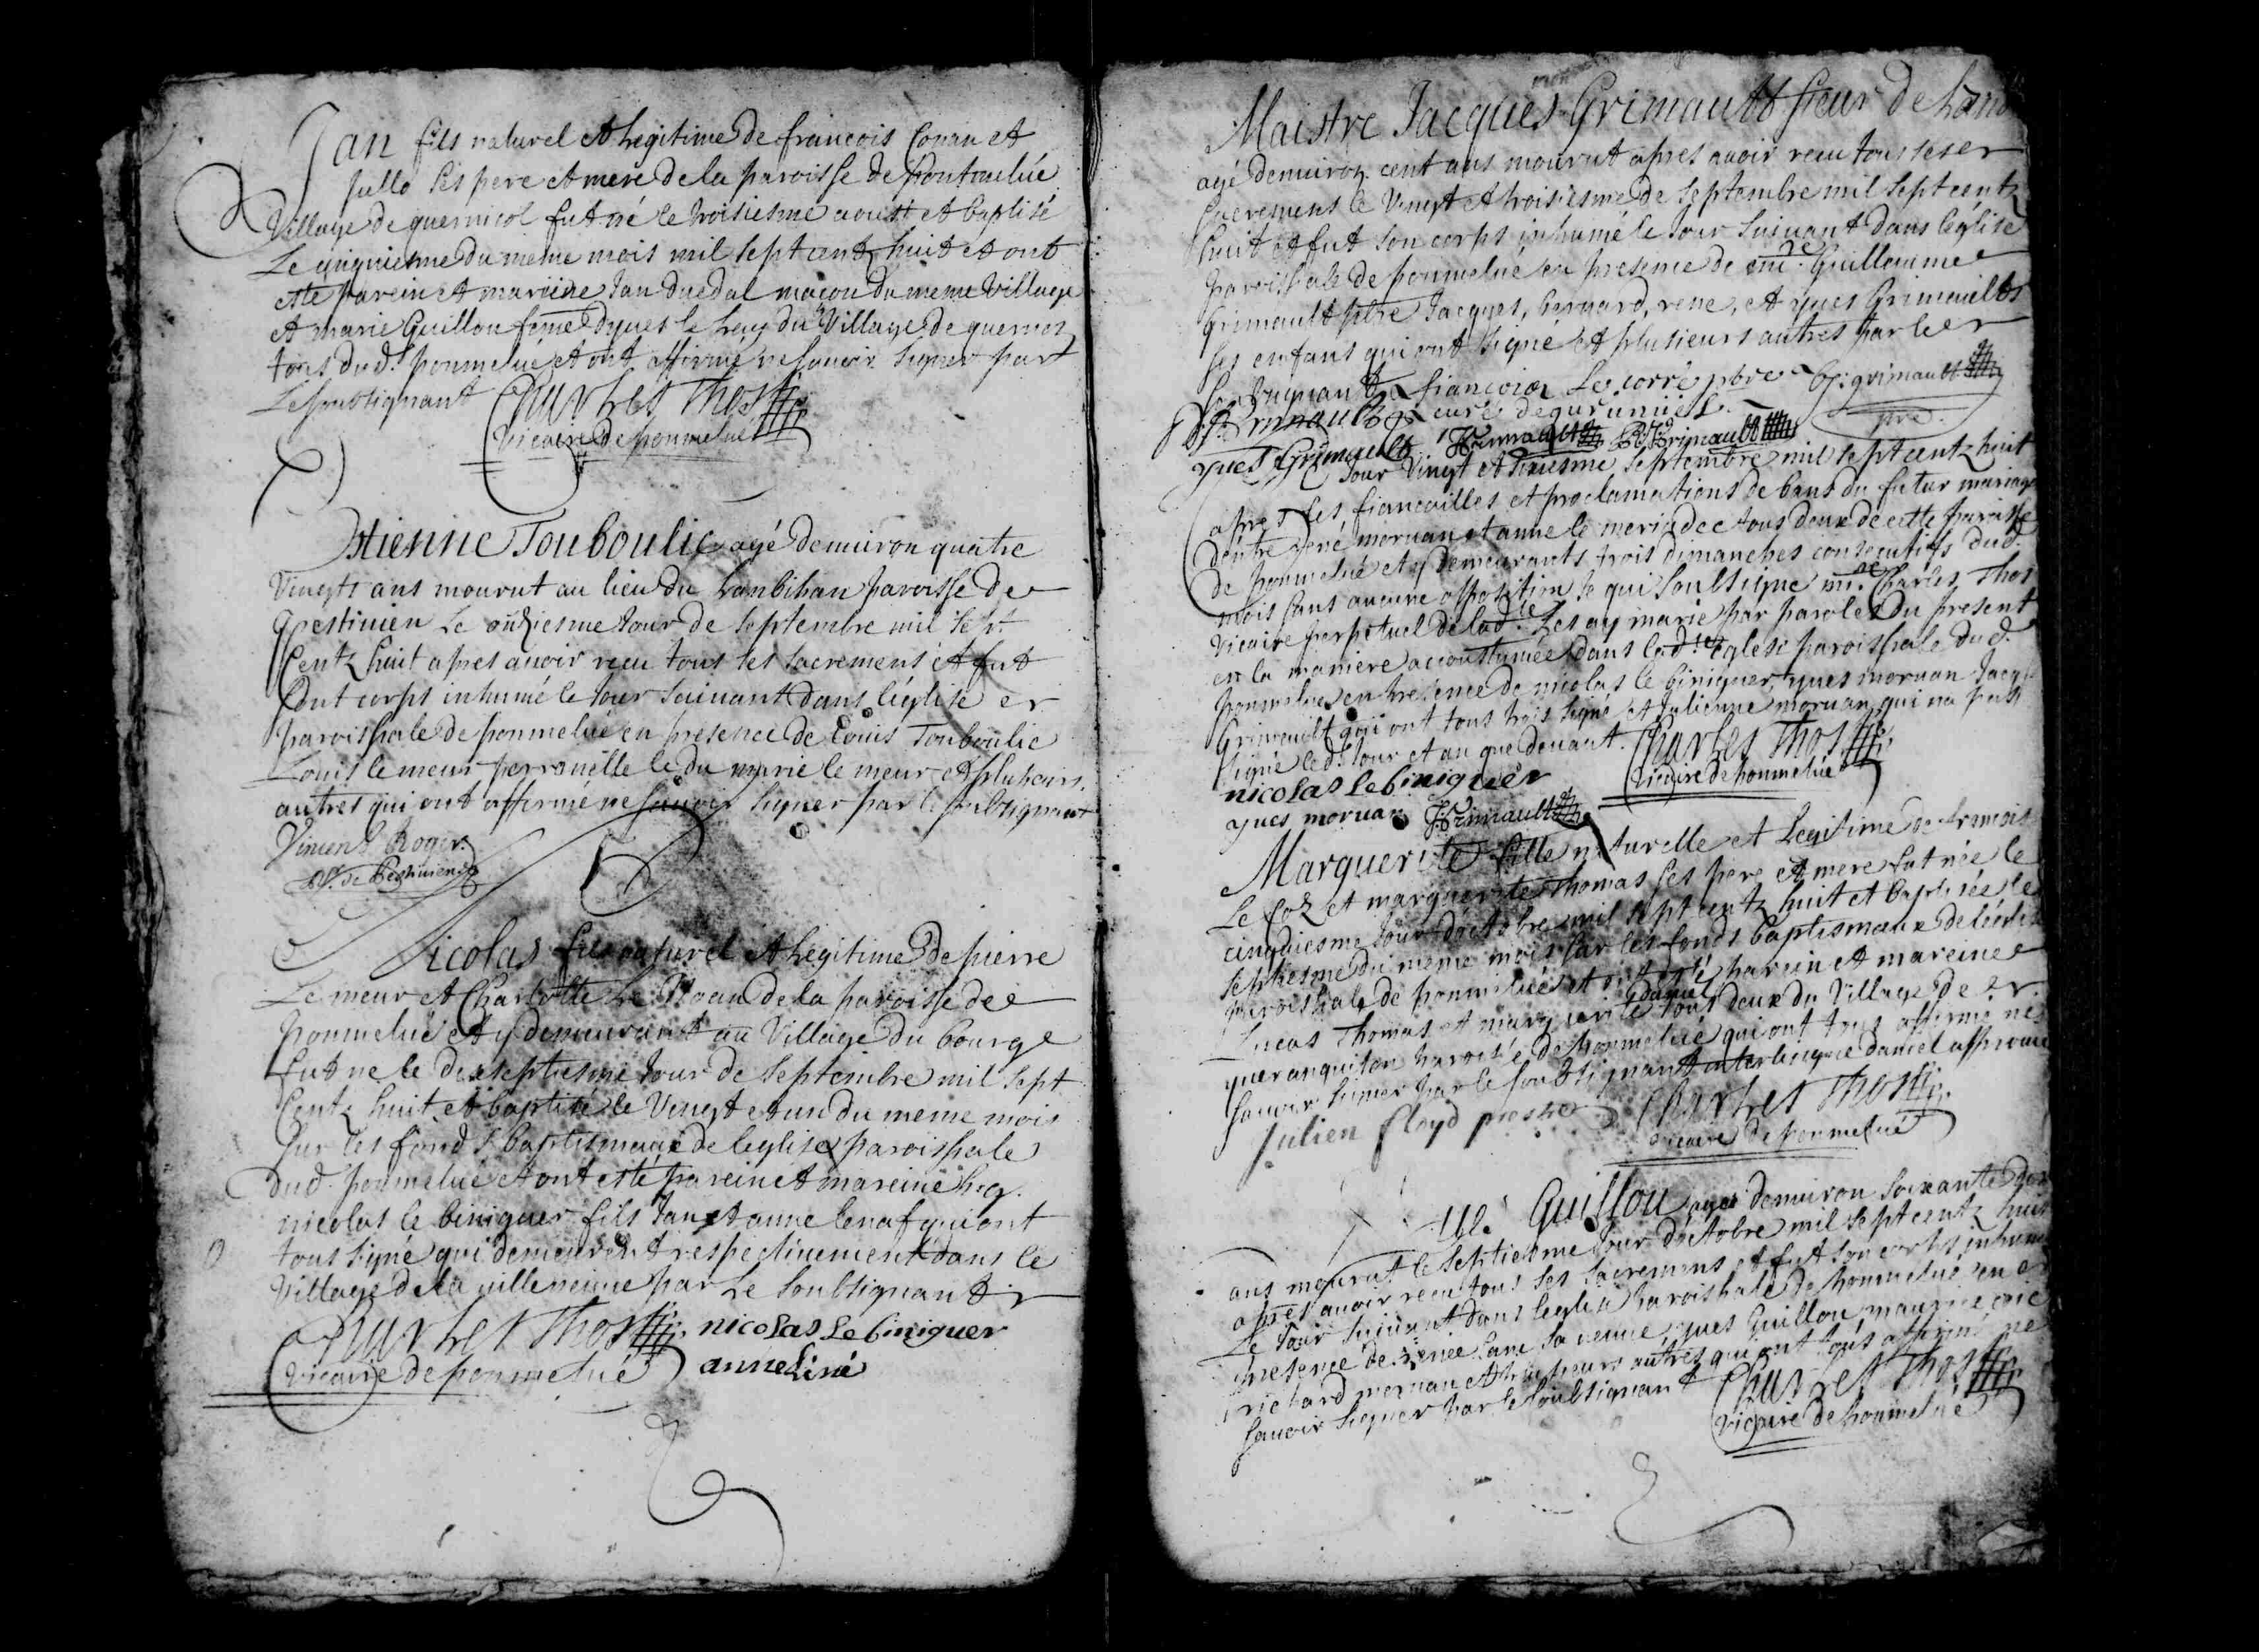 Jan fils naturel et legitime de francois Conan et
jullo ses pere et mere de la paroisse de
Village de quernicol fut né le troisiesme aoust et baptisé
Le cinquiesme du meme mois mil sept centz huit et ont
esté parein et mareine Jan duedal maçon du meme Village
et marie Guillou feme d'yues le hay du Village de
tous dud. ponmelué et ont affirmé ne sauoir signer par
Le soubsignant Charles Thos
vicaire de ponmelué
Etienne Touboulic agé denuiron quatre
Vingts ans mourut au lieu du paroisse de
pestiuien Le onziesme Jour de septembre mil sept
Centz huit apres auoir receu tous ses sacremens et fut
corps inhumé le Jour suiuant dans l'église
paroissiale de ponmelué en presence de Louis Touboulic
Louis le meur perronelle le du marie le meur et plusieurs
autres qui ont affirmé ne sauoir signer par le soubsignant
Vincent Roger
de Pestiuien
Nicolas fils naturel et Legitime de pierre
Le meur et Charlotte Le de la paroisse de
ponmelué et y demeurant au Village du bourg
fut ne le dixseptiesme Jour de septembre mil sept
Centz huit et baptisé le Vingt et un du meme mois
sur les fonds baptismaux de l'eglise paroissiale
dud. ponmelué et ont esté parein et mareine
nicolas le biniguer fils Jan et anne qui ont
tous signé qui demeurent respectiuement dans le
Village de la villeneuue par Le Soubsignant
Charles Thos nicolas le biniguer
vicaire de ponmelué anne
Maistre Jacques Grimault sieur de
agé denuiron cent ans mourut apres auoir receu tous ses
sacremens le Vingt et troisiesme de septembre mil sept centz
huit et fut son corps inhumé le Jour suiuant dans l'église
paroissiale de ponmelué en presence de Guillaume
Grimault ptre Jacques, bernard, rene, et yues Grimaults
ses enfans qui ont signé et plusieurs autres par le
soubsignant francois Le corre ptre grimault
Grimault curé de pre.
yues Grimault Grimault Grimault
Jour Vingt et septembre mil sept centz huit
apres les fiancailles et proclamations de bans du futur mariage
dentre rené moruan et anne le meriadec tous deux de cette paroisse
de ponmelué et y demeurants trois dimanches consecutifs dud.
mois sans aucune opposition Je qui soubsigne Charles Thos
vicaire perpetuel de lad. Les ay marie par paroles Du present
en la maniere accoustumée dans lad. Eglise paroissiale dud.
ponmelué en presence de nicolas le biniguer, yues moruan Jacq
Grimault qui ont tous trois signé et Julienne moruan qui na pas
signé led. Jour et an que deuant. Charles Thos
nicolas le biniguer vicaire de ponmelué
yues moruan Grimault
Marguerite fille naturelle et Legitime de francois
Le coz et marguerite Thomas ses pere et mere fut née le
cinquiesme Jour doctobre mil sept centz huit et baptisée le
septiesme du meme mois sur les fonds baptismaux de l'eglise
paroissiale de ponmelué et ont esté parein et mareine
daniel
Lucas Thomas et marguerite tous deux du Village de
paroisse de ponmelué qui ont tous affirmé ne
sauoir signer par le soubsignant interligne daniel approuué
Julien floyd prestre Charles Thos
vicaire de ponmelué
Guillou agé denuiron soixante
ans mourut le septiesme Jour d'octobre mil sept centz huit
apres auoir receu tous ses sacremens et fut son corps inhumé
Le Jour suiuant dans leglise paroissiale de ponmelué en
presence de renée sa veuue yues Guillou, maurice
richard moruan et plusieurs autres qui ont tous affirmé ne
sauoir signer par le soubsignant Charles Thos
vicaire de ponmelué